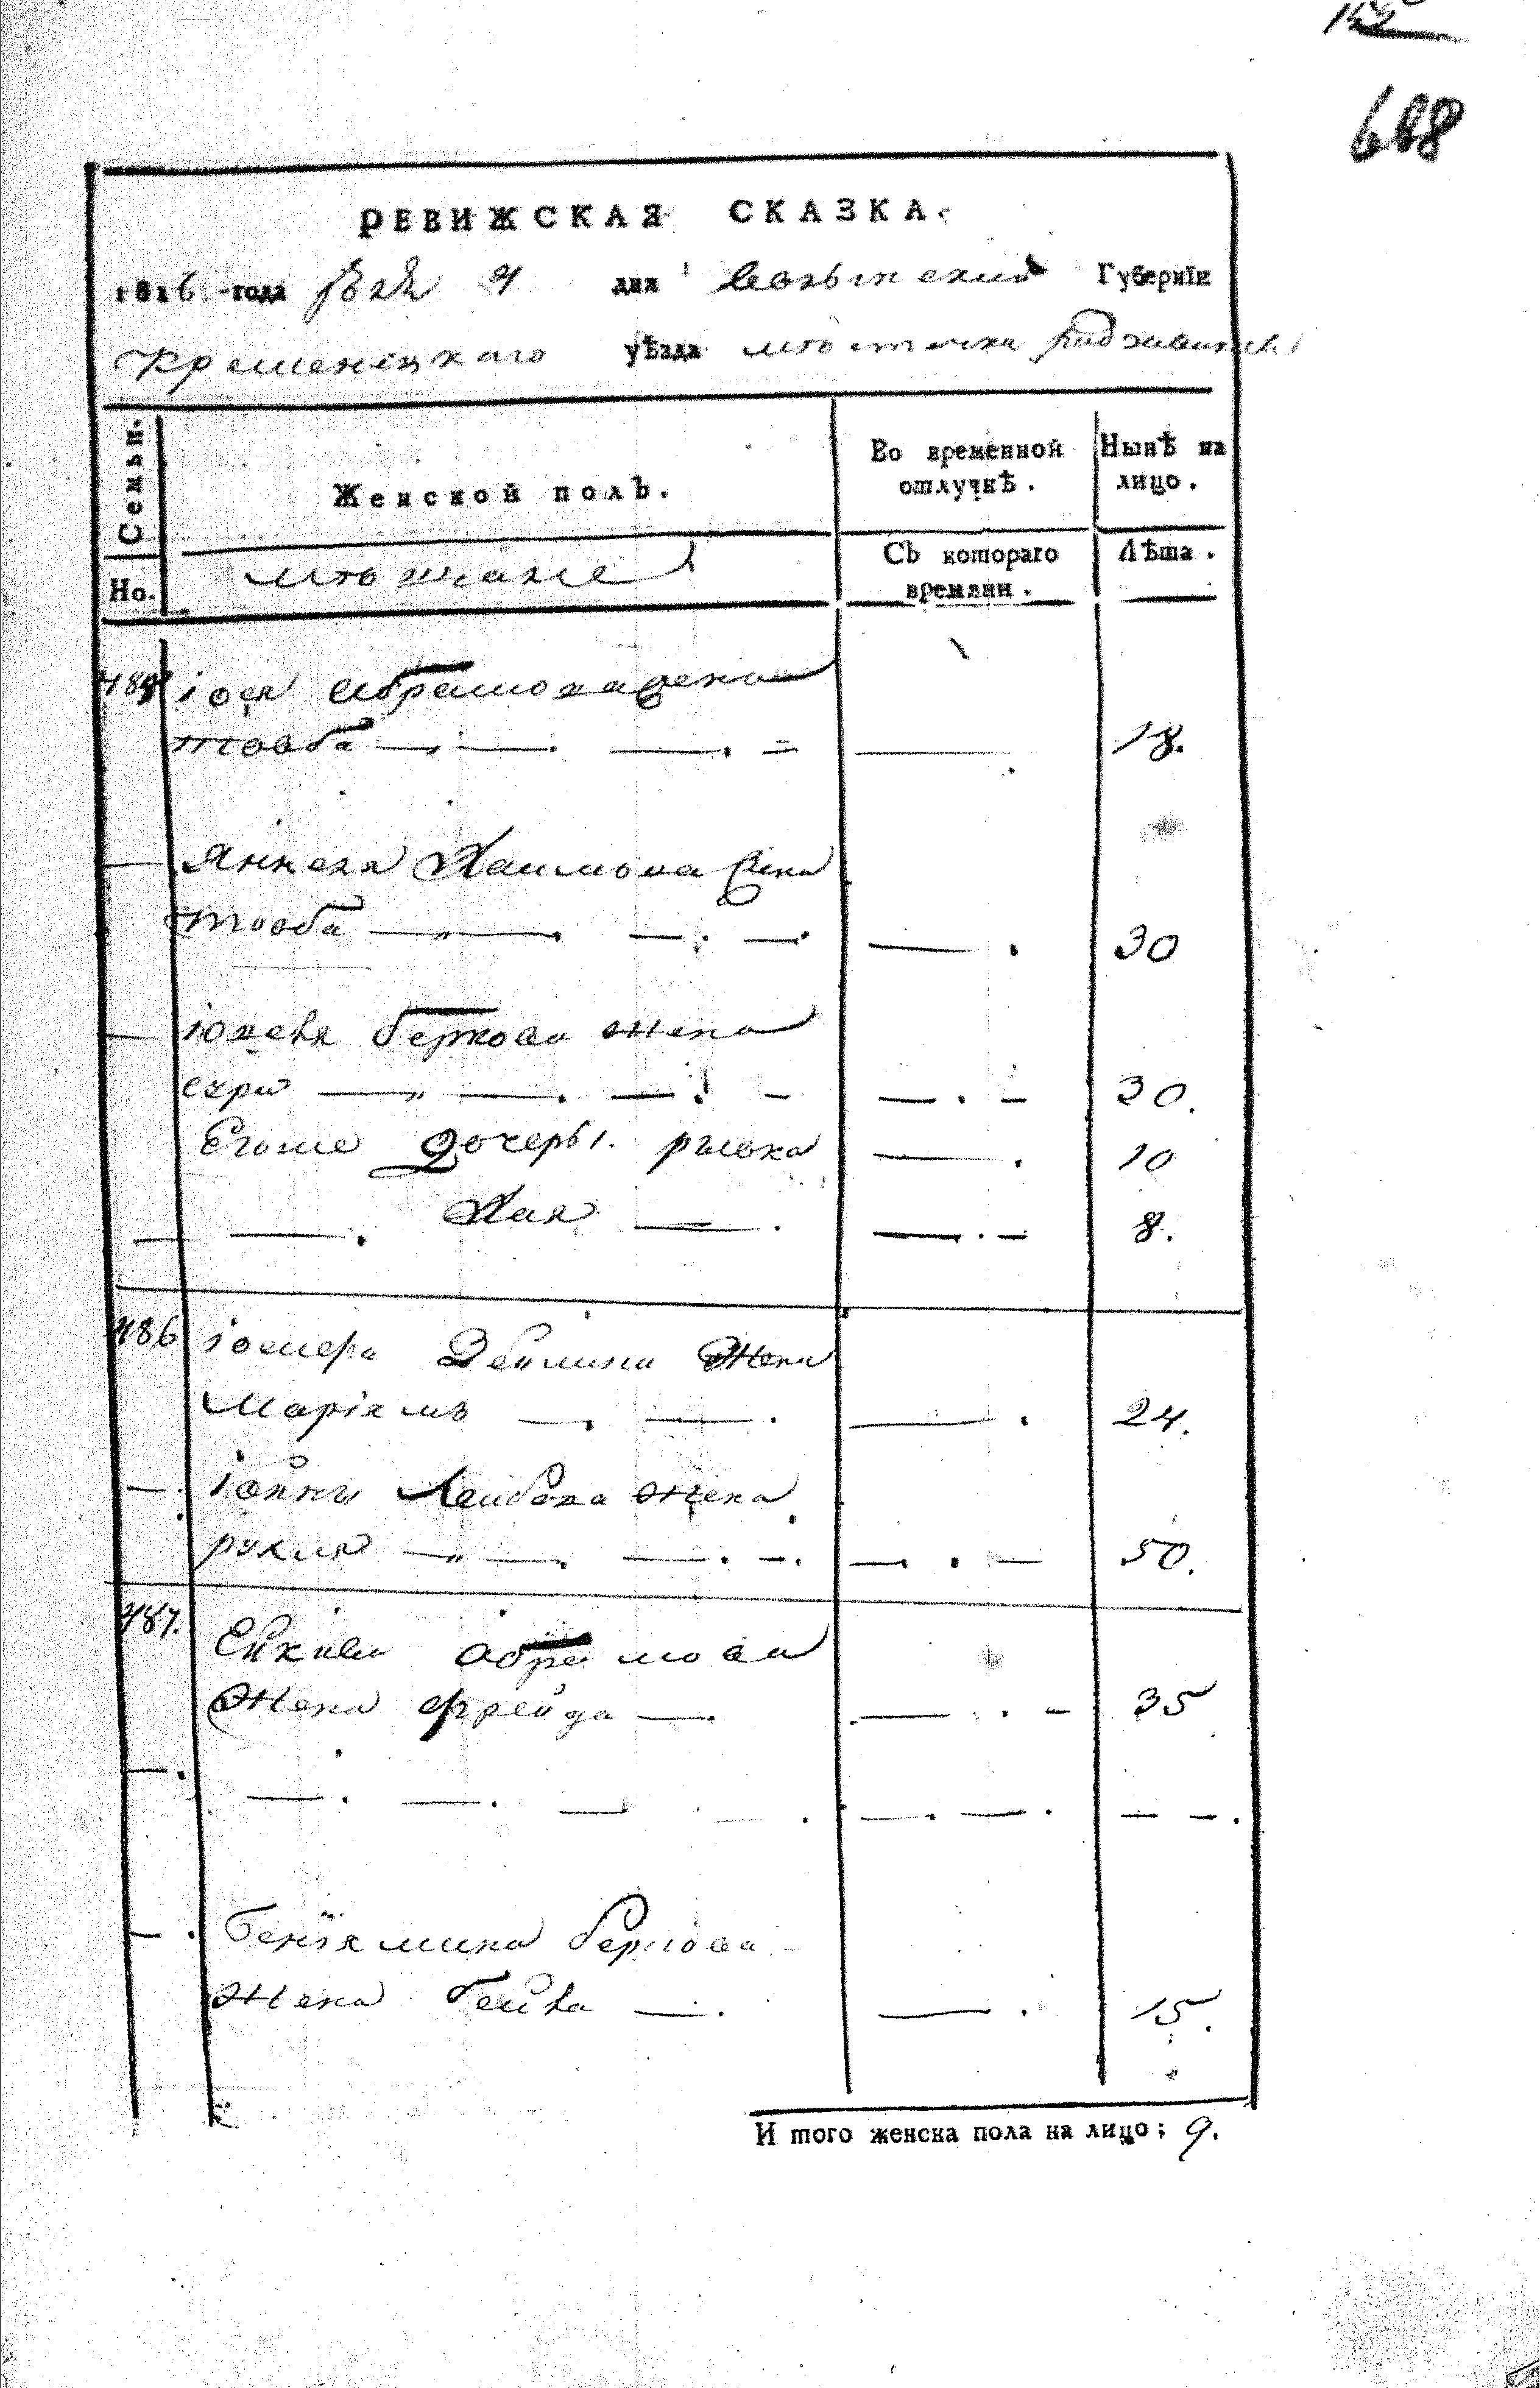 688
РЕВИЖСКАЯ СКАЗКА.
1816 года 4 дня Волынской Губернїи
Кременецкаго уѣзда мѣстечка Радзивилова
Семьи.
Женской полъ.
Во временной отлучкѣ.
Нынѣ на лицо.
Но.
мѣщане
Съ котораго времяни.
Лѣта.
Абрамова жена
товба 18.
Янкеля Хаимова жена
товба 30
Беркова жена
30.
Егоже дочеры 1. рывка 10
Хая 8.
486 жена
Марїямъ 24.
Лейбова жена
рухля 50.
487.
абрамова
жена фрейда 35
Бенїямина Беркова
жена Бейла 15.
И того женска пола на лицо; 9.